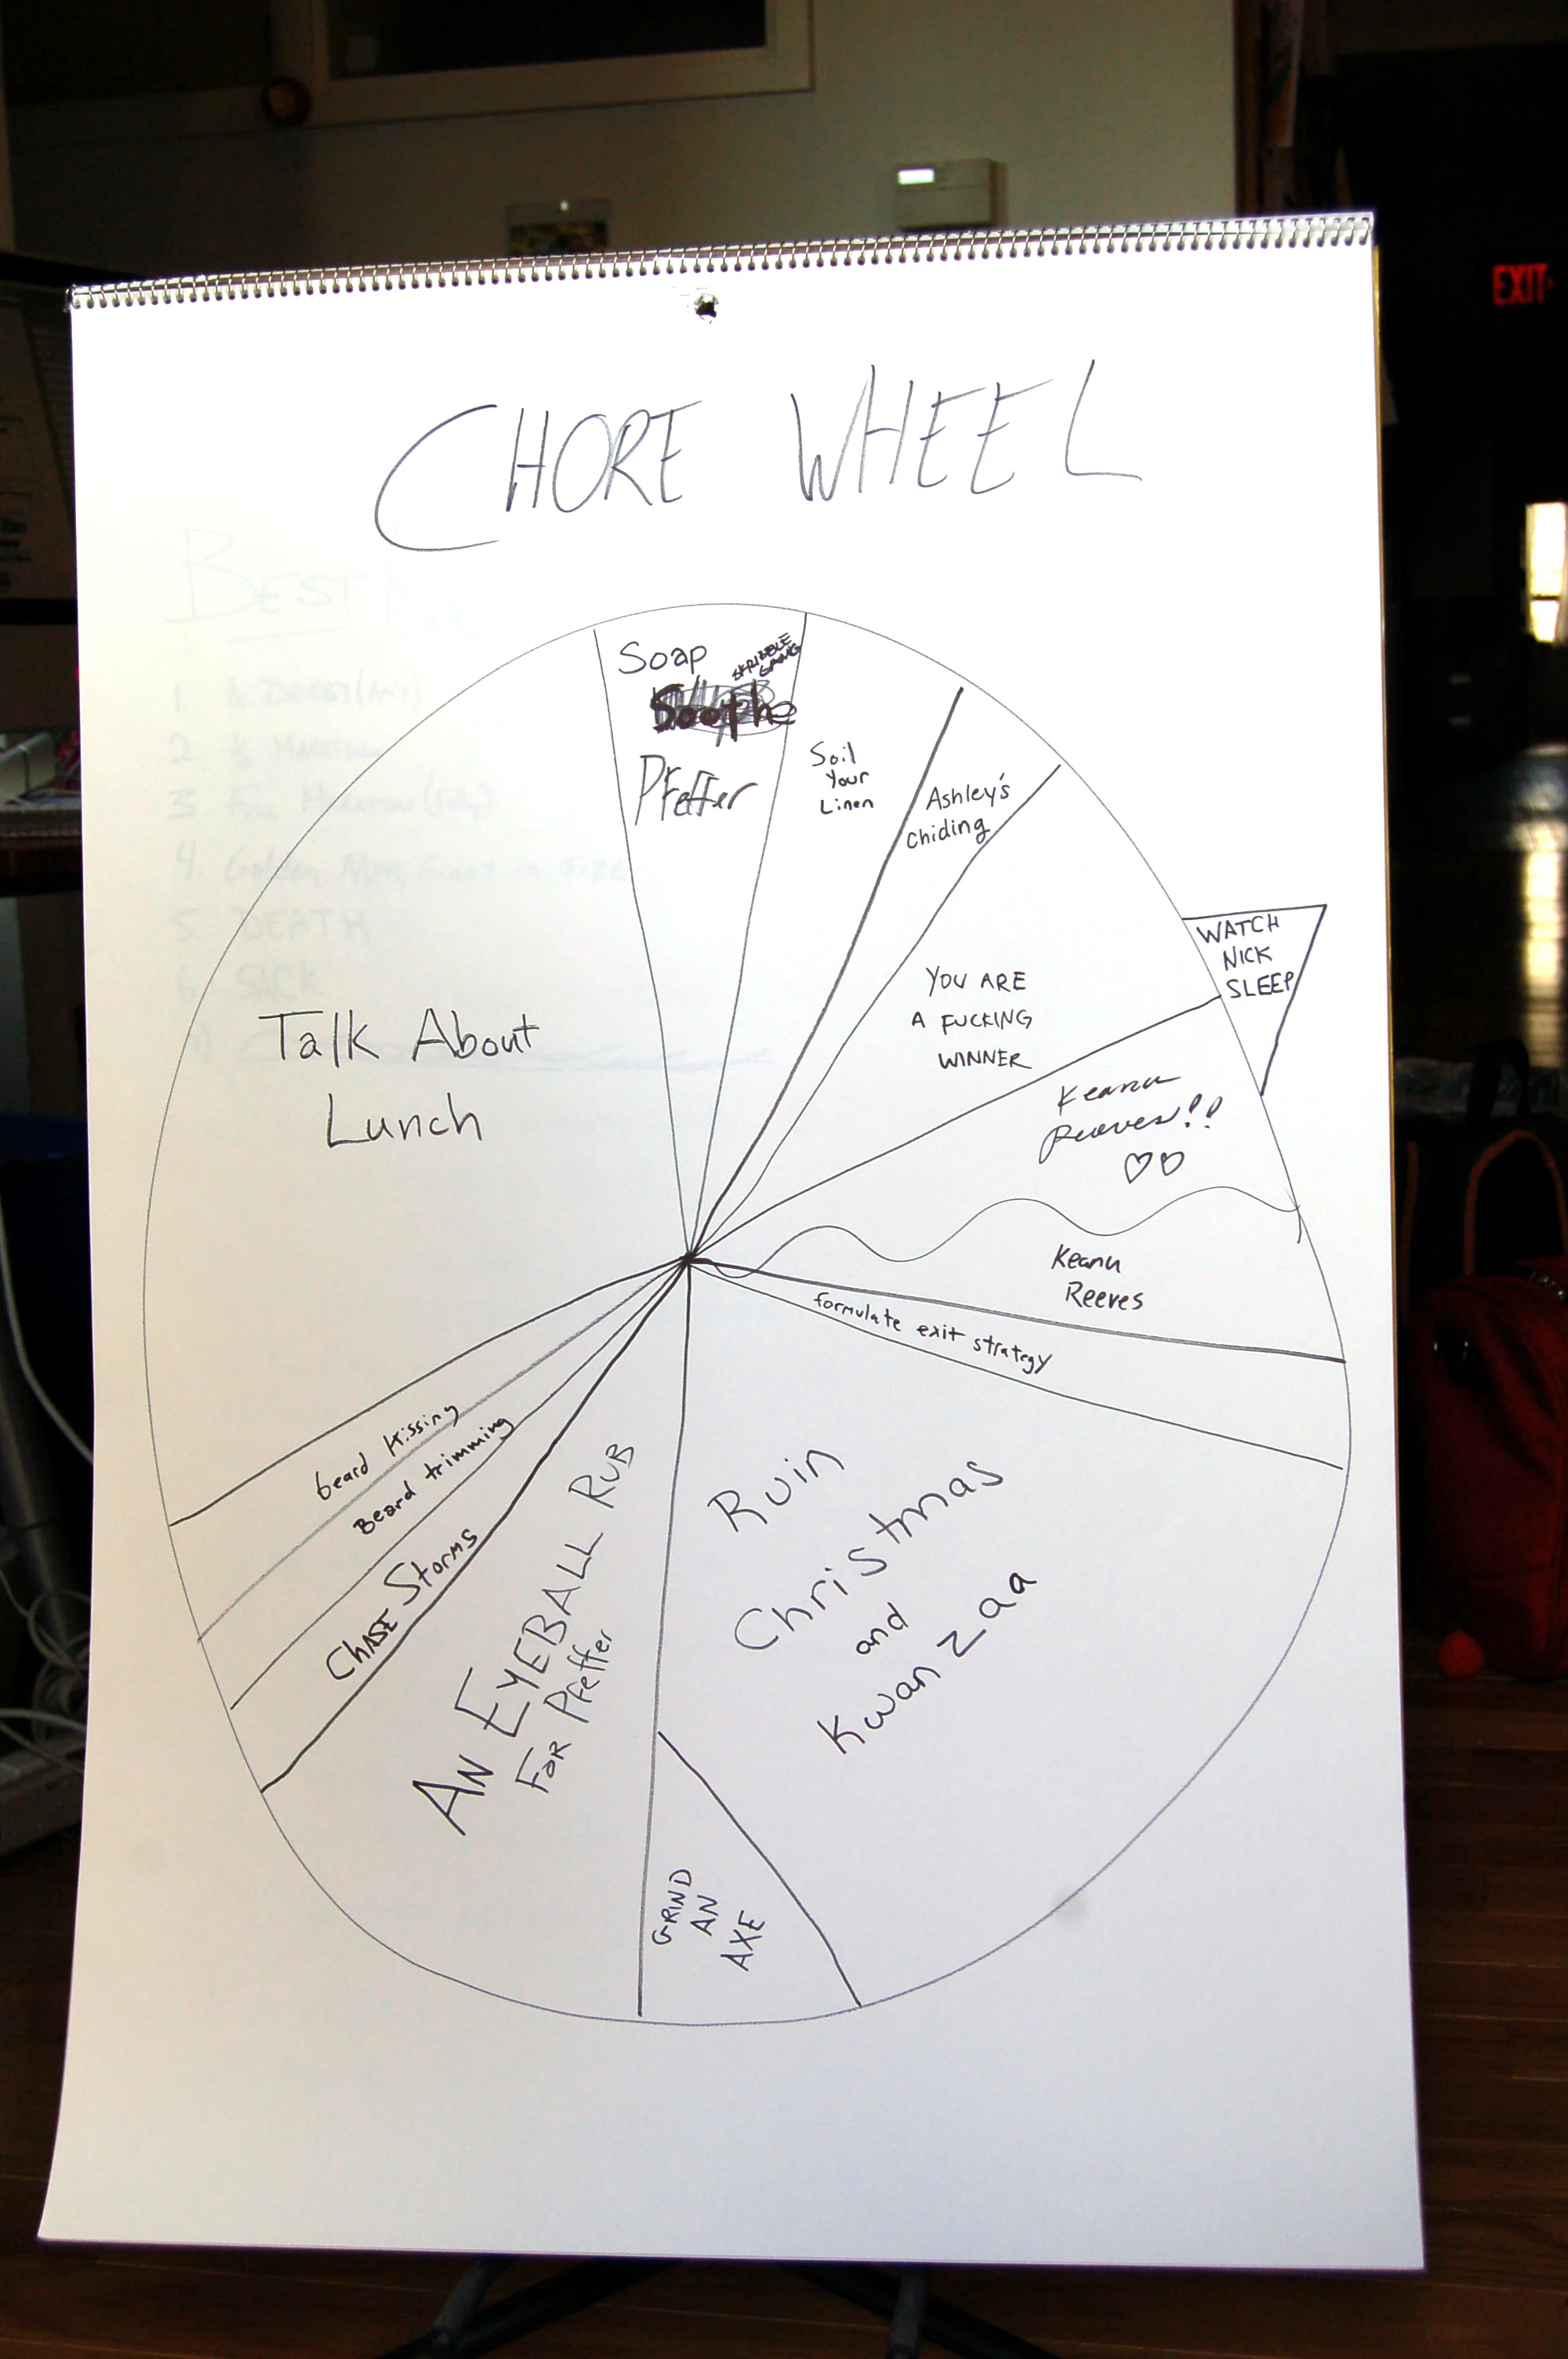 EXIT
CHORE WHEEL
Soap
SKRIBBLE
GANG
Soothe
Pfeffer
Soil
Your
Linen
Ashley's
chiding
YOU ARE
A FUCKING
WINNER
WATCH
NICK
SLEEP
Keanu
Reeves!!
Keanu
Reeves
formulate exit strategy
Ruin
Christmas
and
Kwanzaa
GRIND
AN
AXE
AN EYEBALL RUB
FOR Pfeffer
CHASE Storms
Beard trimming
beard kissing
Talk About
Lunch
BEST
1
2
3
4. Golden Man Giant in Size
5 DEATH
6